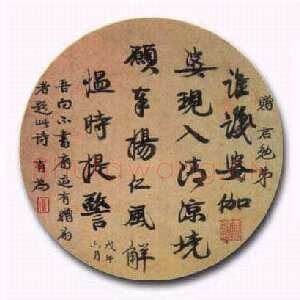 贈君勉弟
誰識婆伽
婆現入清涼境
願奉揚仁風解
愠時提警
六月
吾向不書扇近有贈扇
者題此詩 有為